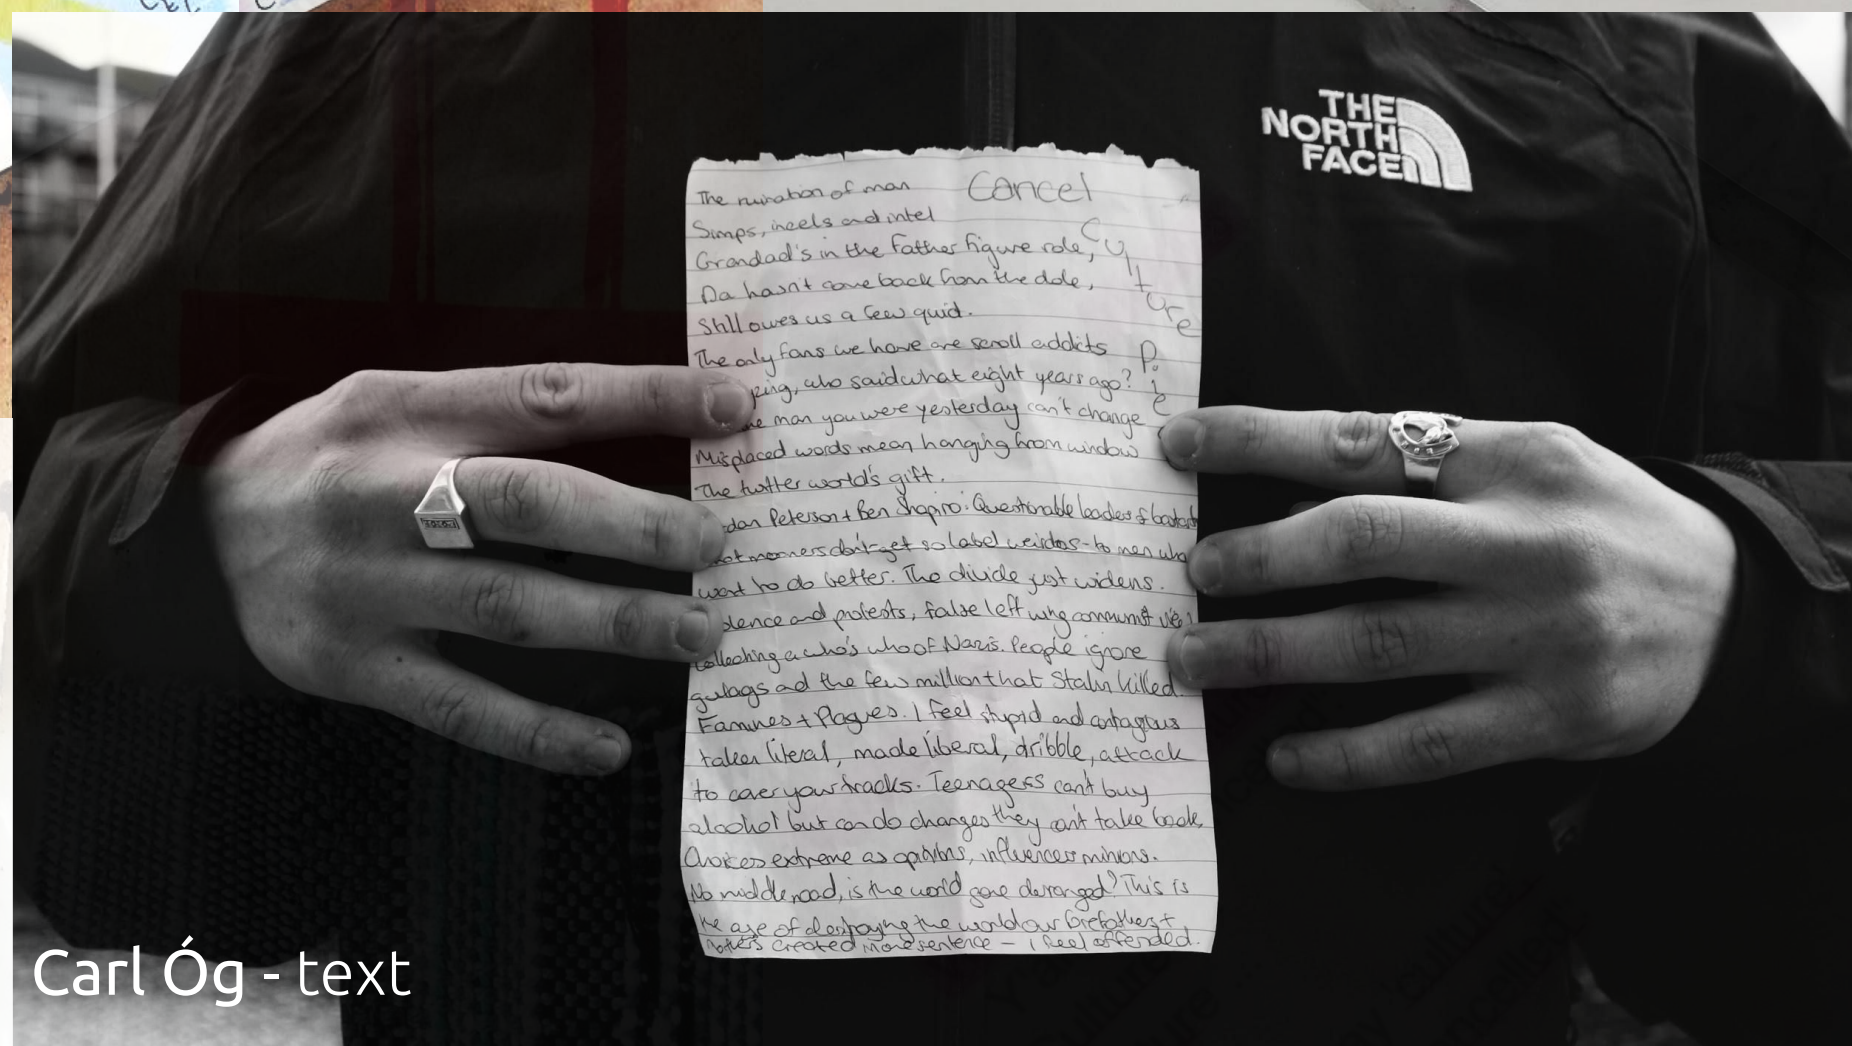 THE
NORTH
FACE
The ruination of man
Cancel
Culture
Piie
Simps, incels and intel
Grandad's in the father figure role,
Da hasn't come back from the dole,
Still owes us a few quid.
The only fans we have are scroll addicts
ping, who said what eight years ago?
man you were yesterday can't change
Misplaced words mean hanging from window
The twitter world's gift.
dan Peterson + Ben Shapiro. Questionable leaders of
mooners don't get so label weirdos - to men who
want to do better. The divide just widens.
lence and protests, false left wing communist
collecting a who's who of Nazis. People ignore
gulags ad the few million that Stalin killed.
Famines + Plagues. I feel stupid and contagious
taken literal, made liberal, dribble, attack
to cover your tracks. Teenagers can't buy
alcohol but can do changes they can't take back,
Choices extreme as opinions, influencer minions.
No middle road, is the world gone deranged? This is
the age of destroying the world our forefathers +
mothers created in one sentence - I feel offended.
Carl Óg - text